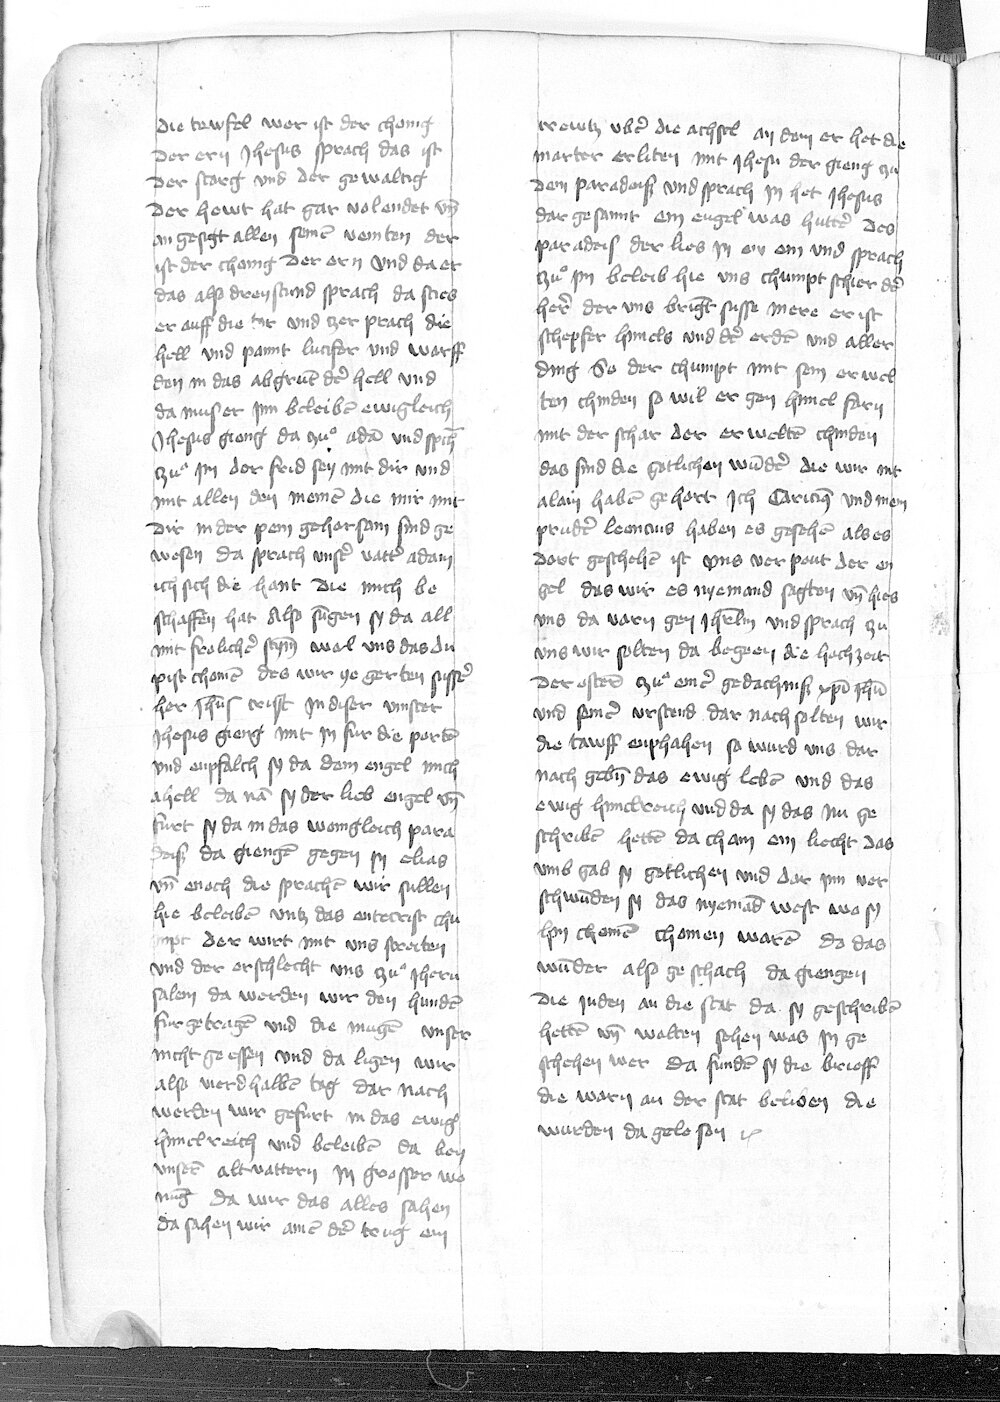 die tewfel wer ist der chonig
Der ern Jhesus sprach das ist
Der starg und der gewaltig
Der hewt hat gar volendet vn̄
an gesigt allen seinē veinten der
ist der chonig Der ern Und da er
das also dreystund sprach da sties
er auff die tor und zer prach die
hell und pannt lucifer und warff
den in das abgrūt dēr hell und
da mus er inn beleibē ewigleich
Jhesus gieng da zuͦ adā und sp̄ch
zuͦ im der frid sey mit dir und
mit allen den meinē die mir mit
Dir in der pein gehorsam sind ge
wesen Da sprach unsēr vattēr adam
ich sich die hant Die mich be
schaffen hat Also sūgen sy da all
mit frolichēr stȳm wol uns das du
pist chomē des wir ye gerten sussēr
her Jhūs crist in diser vinster
Jhesus gieng mit in fur die portē
und enpfalch sy da dem engel mich
ahell da nā sy der lieb engel vn̄
furt sy da in das wonigleich para
deiß da giengē gegen in elias
vn̄ enoch die sprachē wir sullen
hie beleibē untz das entecrist chu
mpt Der wirt mit uns streiten
und der erschlecht uns zuͦ Jheru
salem da werden wir den hundē
fur getragē und die mugē unser
nicht ge essen und da ligen wir
also vierdhalbē tag dar nach
werden wir gefurt in das ewig
himelreich und beleibē da bey
unserē altvattern in grosser wo
nūg da wir das alles sahen
da sahen wir ainē dēr trug ein
krewtz ubēr die achsel an dem er het die
marter erliten mit Jhesu der gieng zu
dem paradeiß und sprach in het Jhesus
dar gesannt ein engel was huttēr Des
paradeis der lies in ein und sprach
zuͦ im beleib hie uns chumpt schier dēr
herē der uns bringt susse mere er ist
schepfer himels und dēr erdē und aller
ding So der chumpt mit sein erwel
ten chinden so wil er gen himel farn
mit der schar der erweltē chinden
das sind die gotlichen wūdēr die wir mit
alain habē gehort Ich Caricius und mein
prudēr leoncius haben es gesehē als es
dort geschehē ist Uns verpeut der en
gel das wir es nyemand sagten vn̄ hies
uns da varn gen Jhrlm und sprach zu
uns wir solten da begeen die hochzeit
Der osterē zuͦ einēr gedachnuß xp̄i Jhū
und seinēr urstend dar nach solten wir
die tawff enphahen so wurd uns dar
nach gebn̄ das ewig lebē und das
ewig himelreich und da sy das nu ge
schribē hettē da cham ein liecht das
umb gab sy gotlichen und dar inn ver
schwūden sy das nyemād west wo sy
hin chomē chomen warē da das
wūder also geschach da giengen
Die Juden an die stat da sy geschribē
hettē vn̄ wolten sehen was in ge
schehen wer da fundē sy die brieff
die warn an der stat beliben die
wurden da gelesen